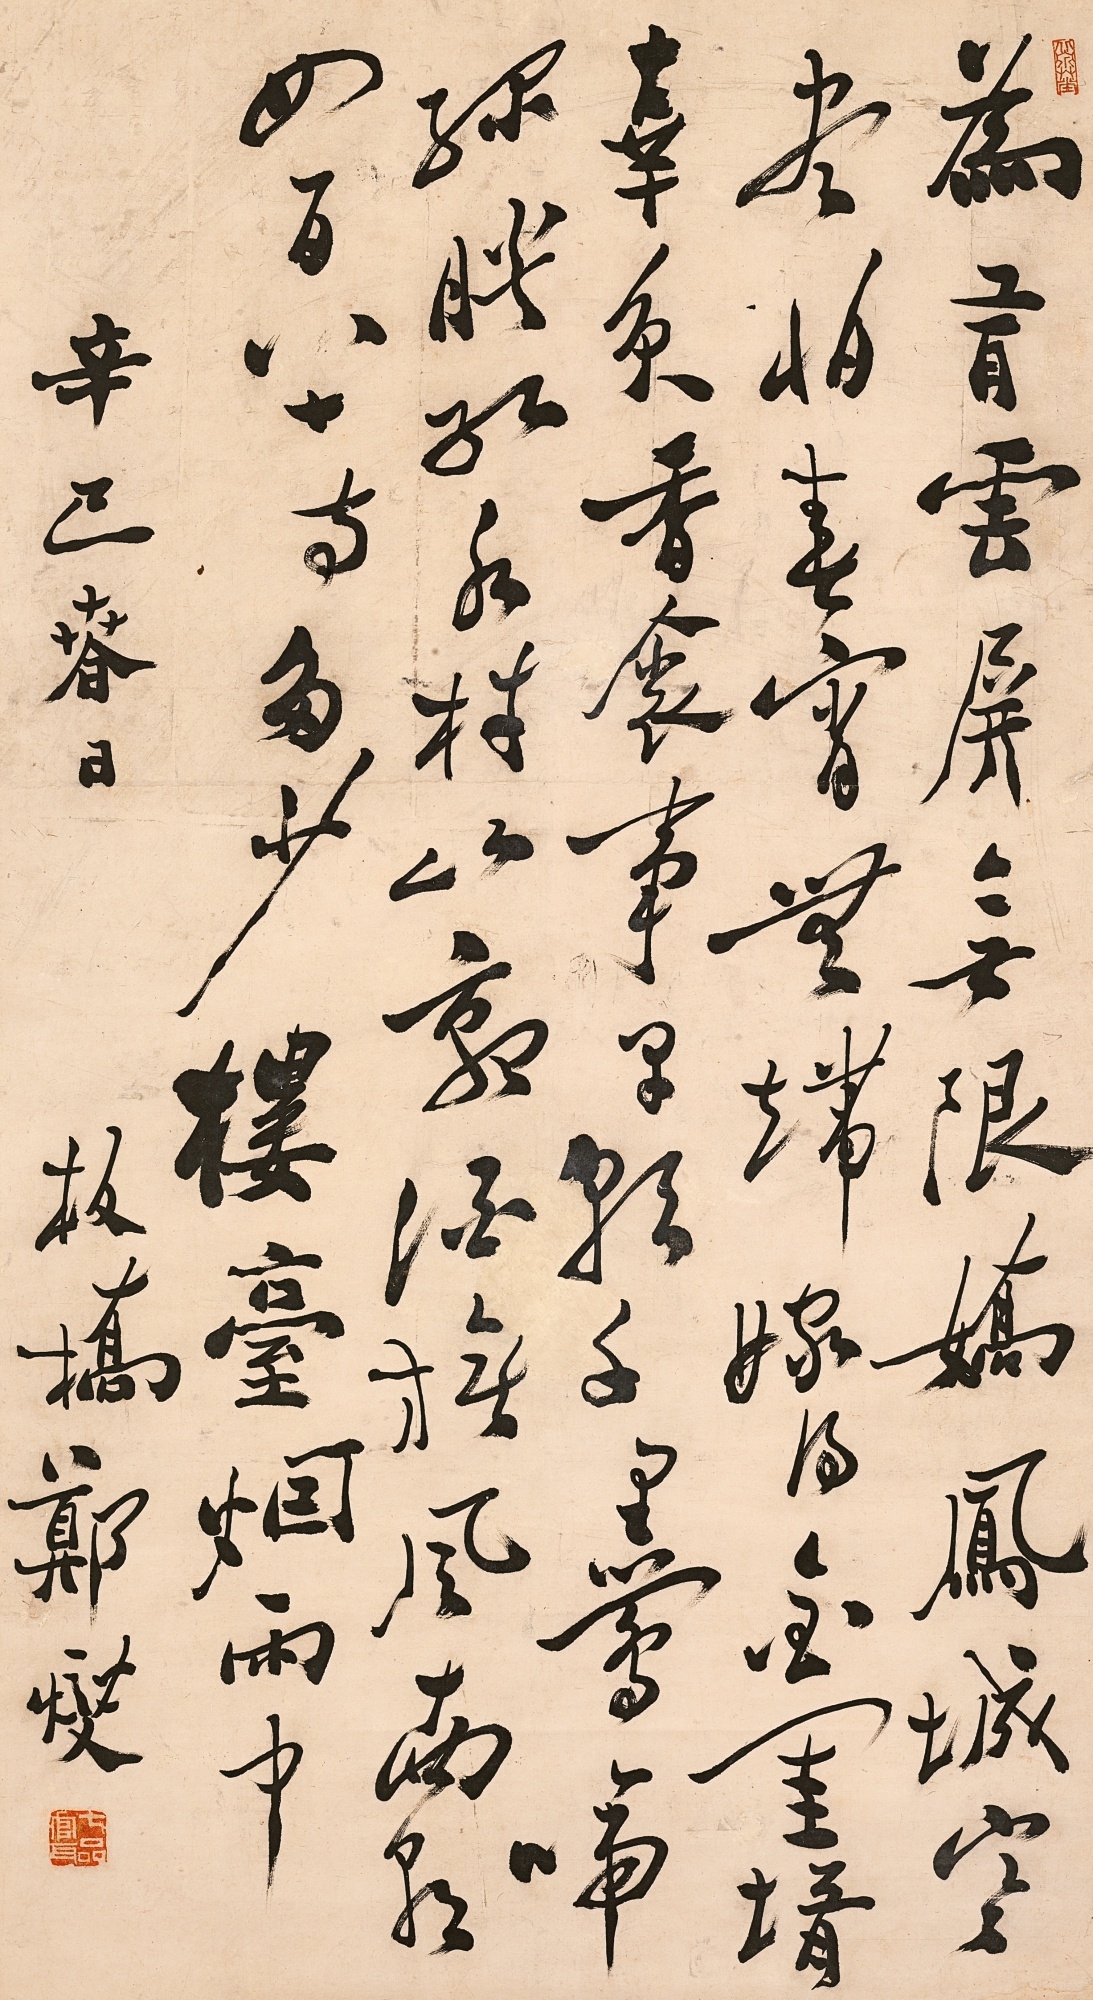 為有雲屏無限嬌鳳城寒
盡怕春宵無端嫁得金龜婿
辜負香衾事早朝千里鶯啼
綠映紅水村山郭酒旗風南朝
四百八十寺多少樓臺烟雨中
辛巳暮日
板橋鄭燮
七品官耳